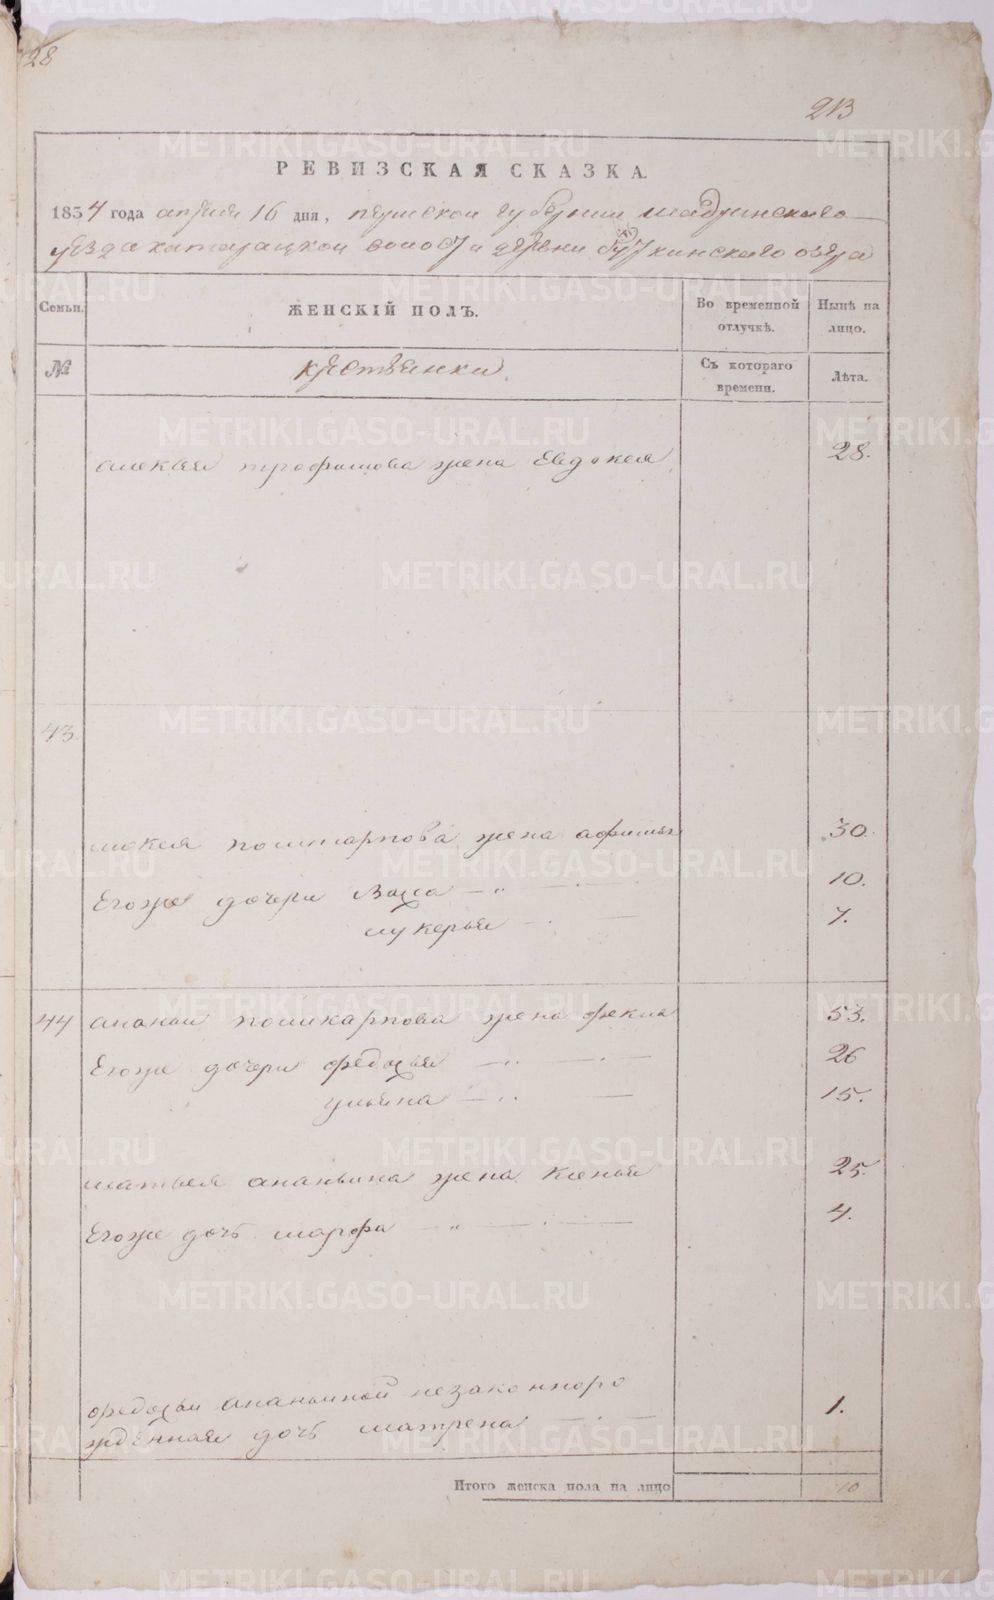 28
213
РЕВИЗСКАЯ СКАЗКА
1834 года апреля 16 дня, пермской губернии шадринского
уезда катарацкой волости деревни озера
Семьи. ЖЕНСКІЙ ПОЛЪ. Во временной отлучкѣ. Нынѣ на лицо.
№ крестьянки Съ котораго времени. Лѣта.
трофимова жена Евдокея 28.
43.
мокея поликарпова жена афимья 30.
Егоже дочери Васса 10.
лукерья 7.
44 ананьи поликарпова жена фекла 53.
Егоже дочери федосья 26
ульяна 15.
матвея ананьина жена 25.
Егоже дочь марфа 4.
федосьи ананьиной незаконноро
жденная дочь матрена 1.
Итого женска пола на лицо 10
METRIKI.GASO-URAL.RU